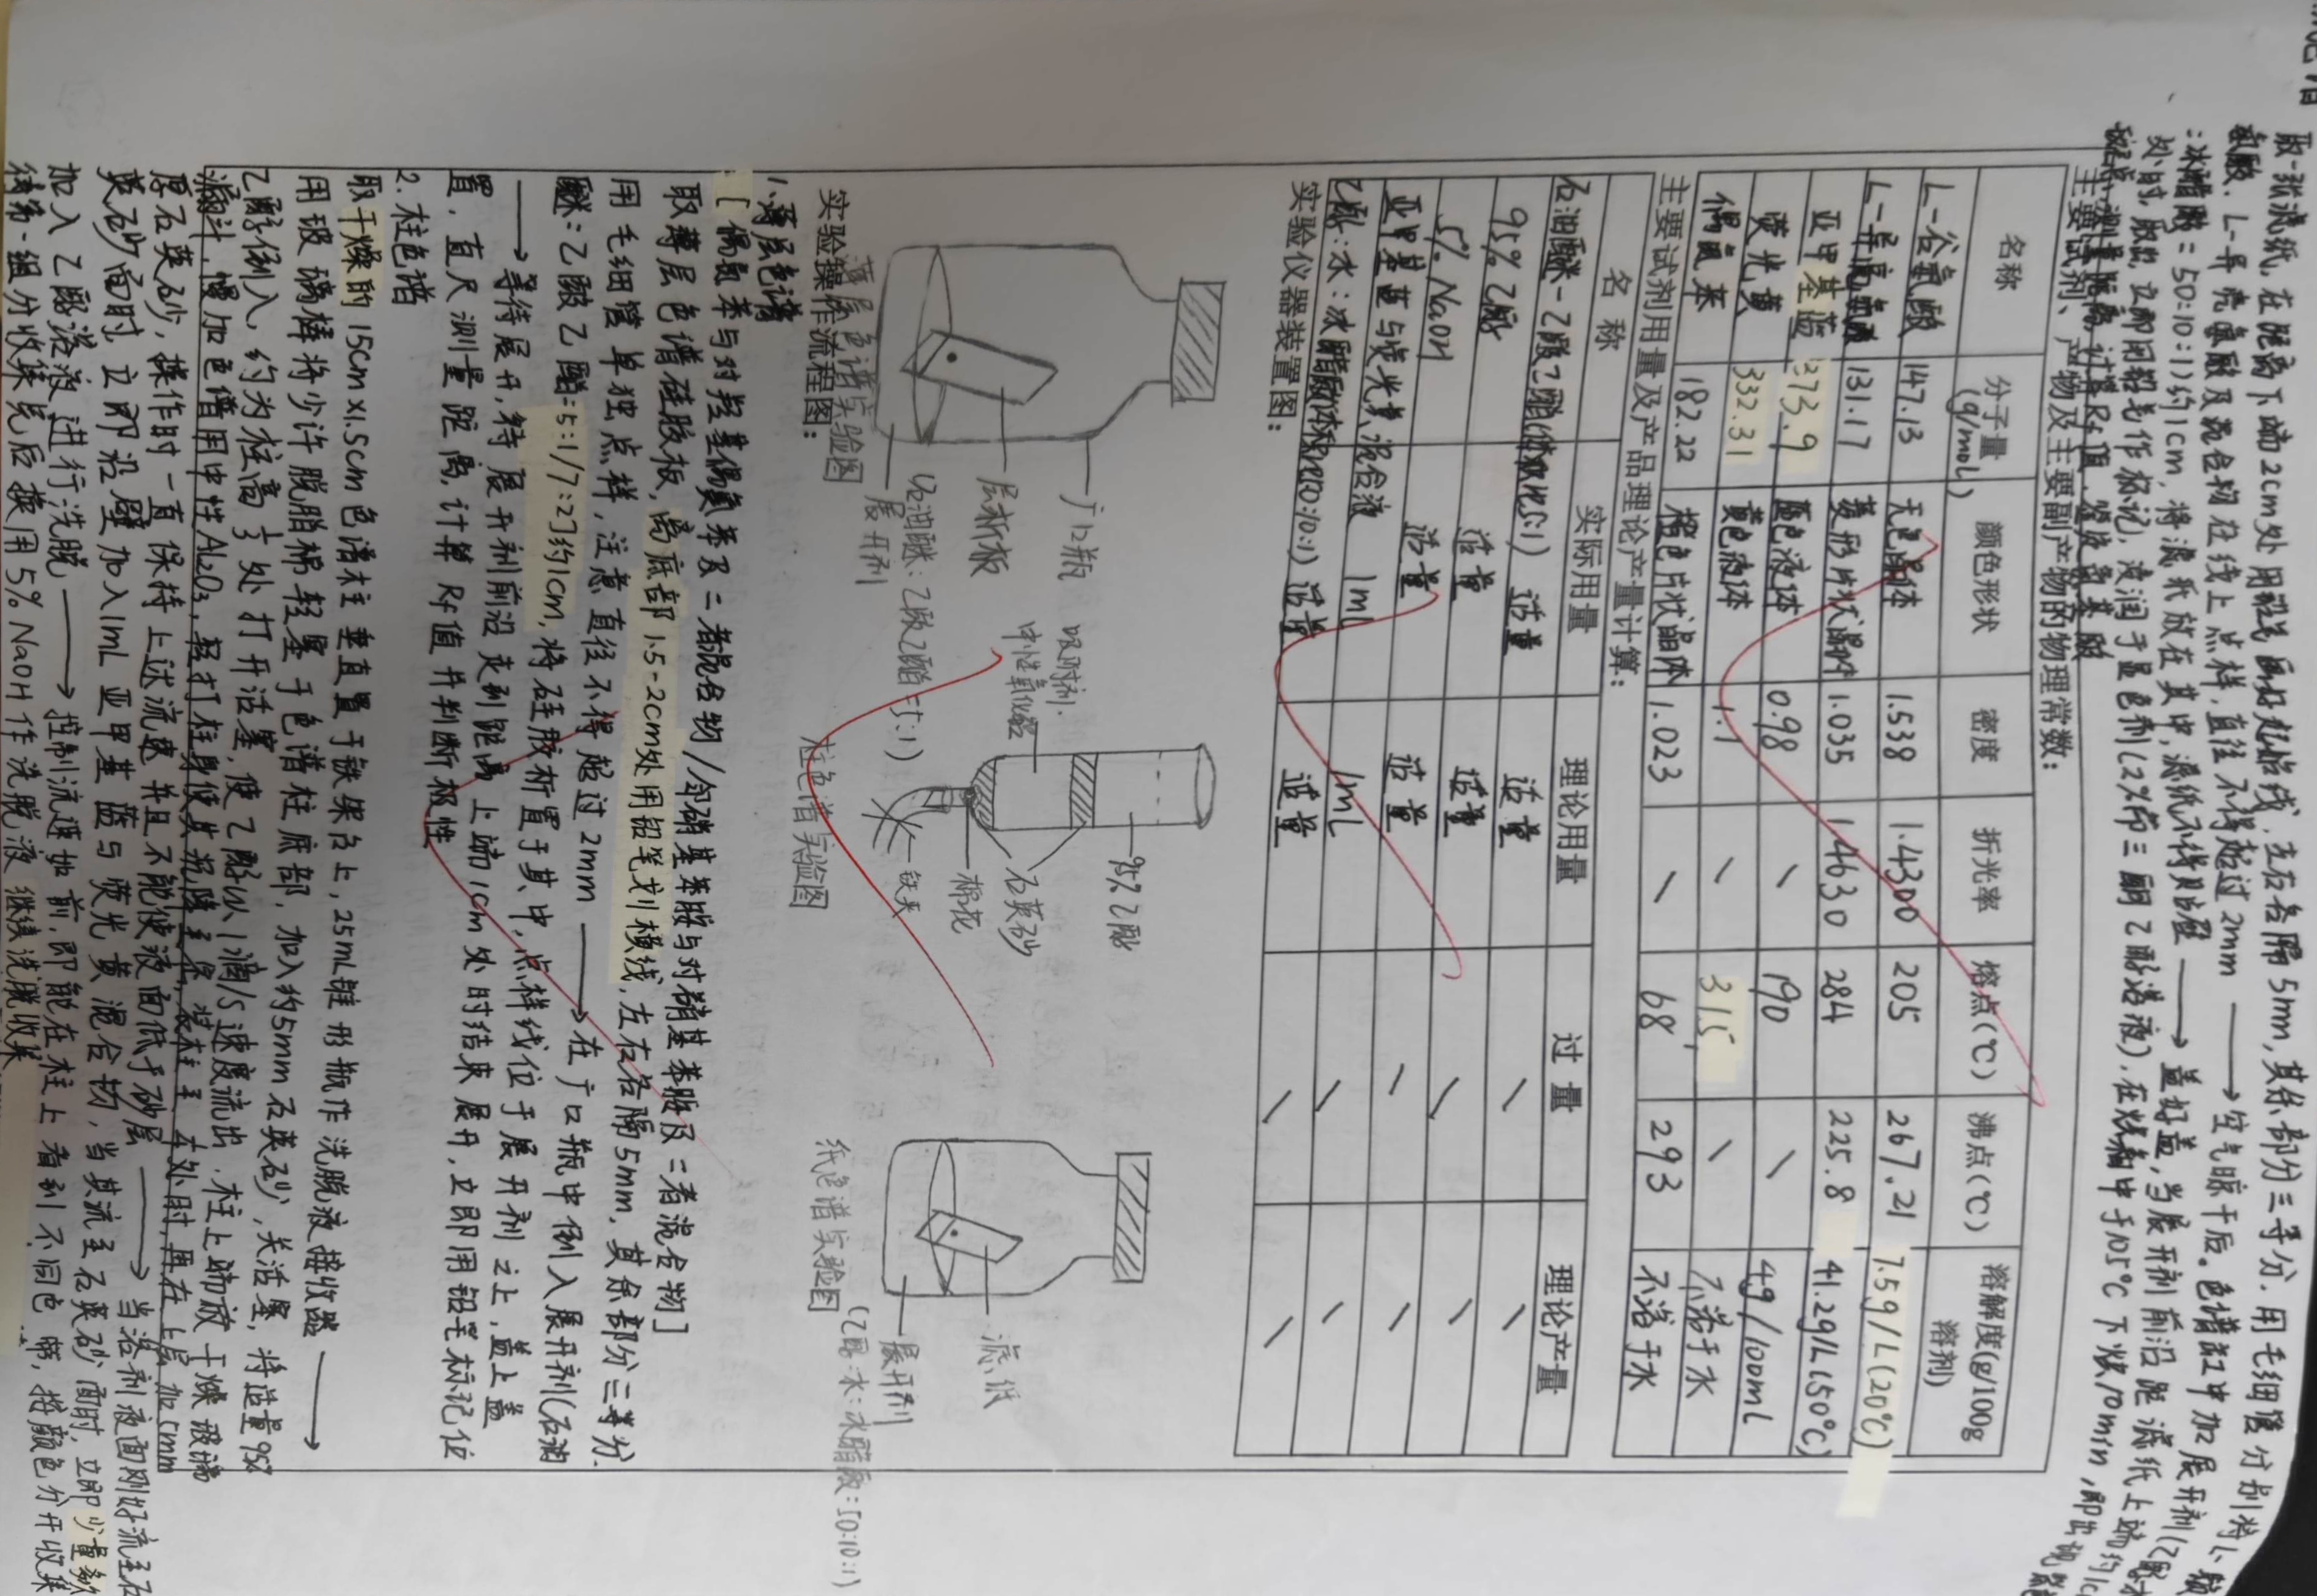 色谱
取一张滤纸,在距离下端2cm处用铅笔画好起始线,左右各隔5mm,其余部分三等分.用毛细管分别将L-
氨酸.L-异亮氨酸及混合物在线上点样,直径不得超过2mm ⟶ 空气晾干后。色谱缸中加展开剂(乙醇:水
:冰醋酸=50:10:1)约1cm,将滤纸放在其中,滤纸不得贝占壁 ⟶ 盖好盖,当展开剂前沿距滤纸上端约1c
处时,取出,立即用铅笔作标记,浸润于显色剂(2%茚三酮乙醇溶液),在烘箱中于105℃下烘10min,即出现
斑点,测量距离,计算Rf值.鉴定氨基酸
主要试剂、产物及主要副产物的物理常数:
名称 分子量(g/mol) 颜色形状 密度 折光率 熔点(℃) 沸点(℃) 溶解度(g/100g溶剂)
L-谷氨酸 147.13 无色晶体 1.538 1.4300 205 267.21 7.5g/L(20℃)
L-异亮氨酸 131.17 菱形片状晶体 1.035 1.4630 284 225.8 41.2g/L(50℃)
亚甲基蓝 373.9 蓝色液体 0.98 \ 190 \ 4g/100mL
荧光黄 332.31 黄色液体 1.1 \ 315 \ 不溶于水
偶氮苯 182.22 橙色片状晶体 1.023 \ 68 293 不溶于水
主要试剂用量及产品理论产量计算:
名称 实际用量 理论用量 过量 理论产量
石油醚-乙酸乙酯(体积比5:1) 适量 适量 \ \
95%乙醇 适量 适量 \ \
5% NaOH 适量 适量 \ \
亚甲基蓝与荧光黄混合液 1ml 1mL \ \
乙醇:水:冰醋酸(体积比50:10:1) 适量 适量 \ \
实验仪器装置图:
广口瓶
层析板
(石油醚:乙酸乙酯=5:1)
展开剂
薄层色谱实验图
吸附剂.
中性氧化铝
95%乙醇
石英砂
棉花
铁夹
柱色谱实验图
滤纸
展开剂
(乙醇:水:冰醋酸=50:10:1)
纸色谱实验图
实验操作流程图:
1.薄层色谱
[偶氮苯与对羟基偶氮苯及二者混合物/邻硝基苯胺与对硝基苯胺及二者混合物]
取薄层色谱硅胶板,离底部1.5-2cm处用铅笔划横线,左右各隔5mm,其余部分三等分.
用毛细管单独点样,注意直径不得超过2mm ⟶ 在广口瓶中倒入展开剂(石油
醚:乙酸乙酯=5:1/7:2)约1cm,将硅胶析置于其中,点样线位于展开剂之上,盖上盖
⟶ 等待展开,待展开剂前沿走到距离上端1cm处时结束展开,立即用铅笔标记位
置,直尺测量距离,计算Rf值并判断极性
2.柱色谱
取干燥的15cm×1.5cm色谱柱垂直置于铁架台上,25mL锥形瓶作洗脱液接收器 ⟶
用玻璃棒将少许脱脂棉轻塞于色谱柱底部,加入约5mm石英砂,关活塞,将适量95%
乙醇倒入,约为柱高处打开活塞,使乙醇以1滴/s速度流出,柱上端放干燥玻璃
漏斗,慢加色谱用中性Al₂O₃,轻打柱身使其沉降至处时,再在上层加5mm
厚石英砂,操作时一直保持上述流速并且不能使液面低于砂层 ⟶ 当溶剂液面刚好流至石
英砂面时,立即沿壁加入1mL亚甲基蓝与荧光黄混合物,当其流至石英砂面时,立即少量多次
加入乙醇溶液进行洗脱 ⟶ 控制流速如前,即能在柱上看到不同色带,按颜色分开收集
待第一组分收集完后换用5%NaOH作洗脱液继续洗脱收集